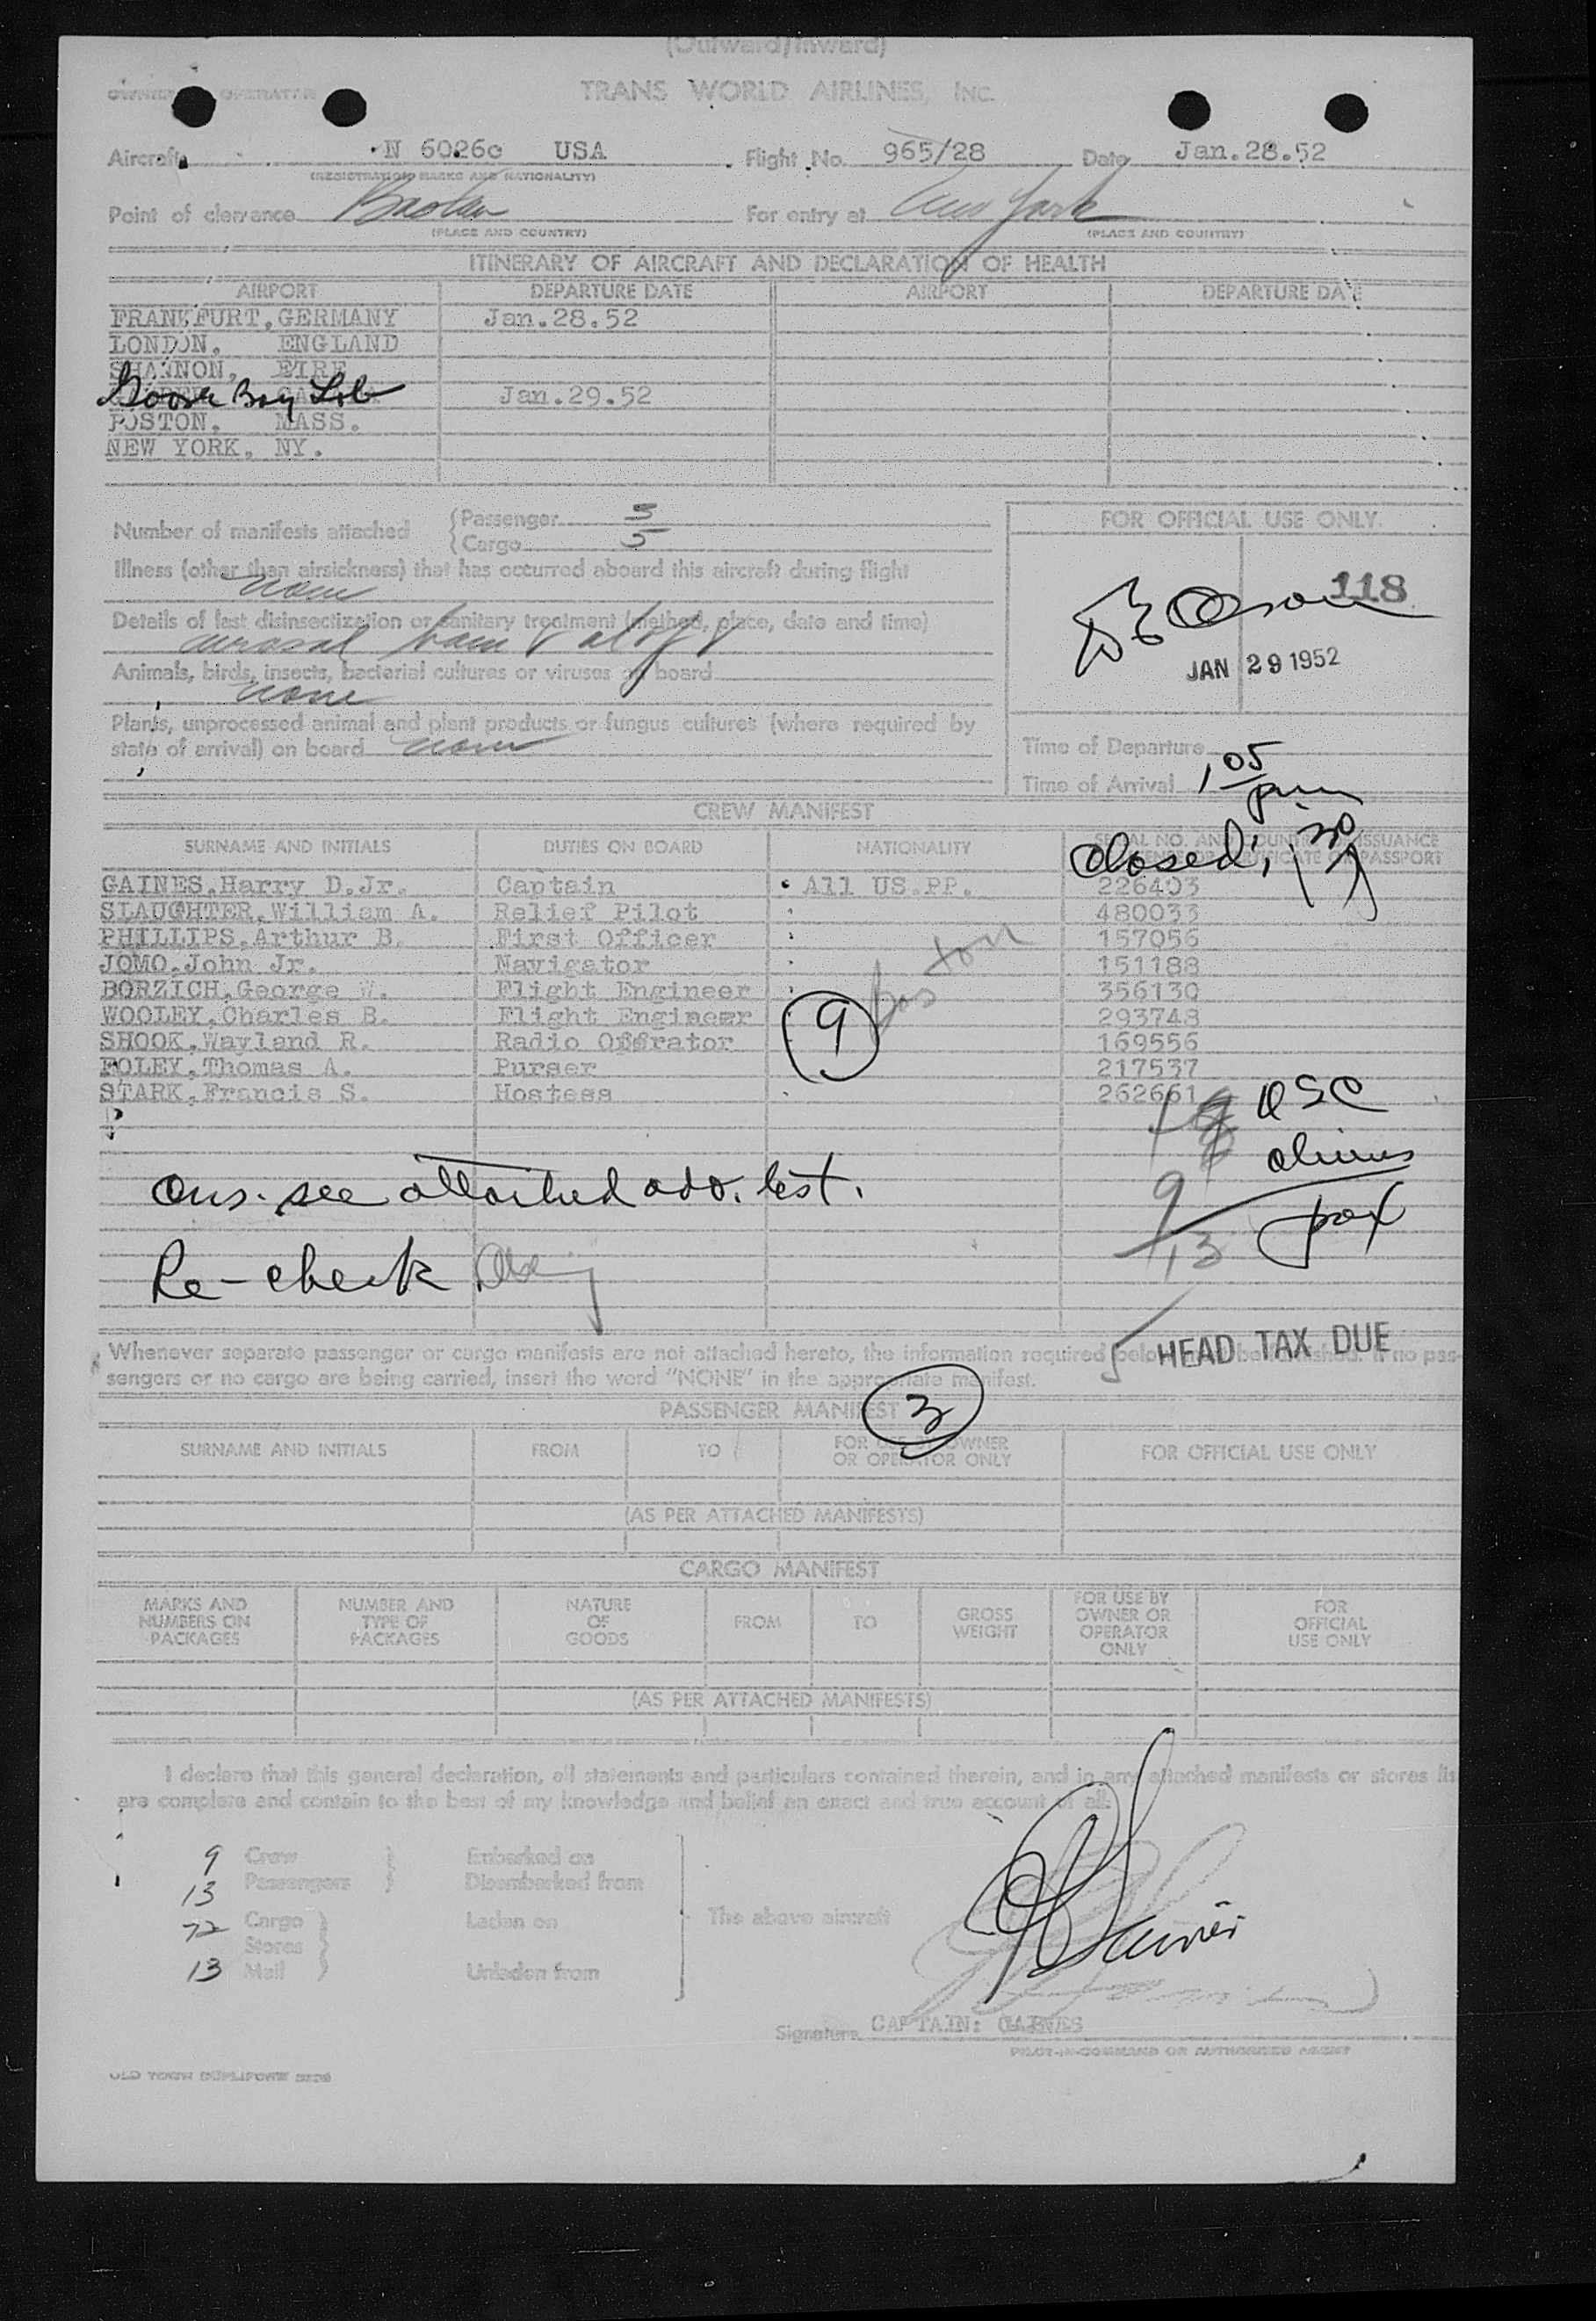 (Outward/Inward)
OWNER OPERATOR TRANS WORLD AIRLINES, INC.
Aircraft N 6026c USA Flight No. 965/28 Date Jan.28.52
(REGISTRATION MARKS AND NATIONALITY)
Point of clearance Boston For entry at New York
(PLACE AND COUNTRY) (PLACE AND COUNTRY)
ITINERARY OF AIRCRAFT AND DECLARATION OF HEALTH
AIRPORT DEPARTURE DATE AIRPORT DEPARTURE DATE
FRANKFURT, GERMANY Jan.28.52
LONDON, ENGLAND
SHANNON, EIRE
Goose Bay Lab Jan.29.52
BOSTON, MASS.
NEW YORK, NY.
Number of manifests attached Passenger 3
Cargo 5
FOR OFFICIAL USE ONLY.
Illness (other than airsickness) that has occurred aboard this aircraft during flight
none
118
Details of last disinsectization or sanitary treatment (method, place, date and time)
aerosol
JAN 29 1952
Animals, birds, insects, bacterial cultures or viruses on board
none
Plants, unprocessed animal and plant products or fungus cultures (where required by
state of arrival) on board none
Time of Departure
Time of Arrival 1 05 pm
CREW MANIFEST
closed: 1 30
SURNAME AND INITIALS DUTIES ON BOARD NATIONALITY SERIAL NO. AND COUNTRY OF ISSUANCE
CERTIFICATE OR PASSPORT
GAINES, Harry D.Jr. Captain All US.PP. 226403
SLAUGHTER, William A. Relief Pilot 480033
PHILLIPS, Arthur B. First Officer 157056
JOMO, John Jr. Navigator 151188
BORZICH, George W. Flight Engineer 356130
WOOLEY, Charles B. Flight Engineer 293748
SHOOK, Wayland R. Radio Operator 169556
FOLEY, Thomas A. Purser 217537
STARK, Francis S. Hostess 262661
9 Boston
USC
aliens
Ons. see attached add. list.
9
13 pax
Re-check
5 HEAD TAX DUE
Whenever separate passenger or cargo manifests are not attached hereto, the information required below must be furnished. If no pas-
sengers or no cargo are being carried, insert the word "NONE" in the appropriate manifest.
PASSENGER MANIFEST 3
SURNAME AND INITIALS FROM TO FOR USE BY OWNER OR OPERATOR ONLY FOR OFFICIAL USE ONLY
(AS PER ATTACHED MANIFESTS)
CARGO MANIFEST
MARKS AND NUMBERS ON PACKAGES NUMBER AND TYPE OF PACKAGES NATURE OF GOODS FROM TO GROSS WEIGHT FOR USE BY OWNER OR OPERATOR ONLY FOR OFFICIAL USE ONLY
(AS PER ATTACHED MANIFESTS)
I declare that this general declaration, all statements and particulars contained therein, and in any attached manifests or stores lis
are complete and contain to the best of my knowledge and belief an exact and true account of all:
9 Crew Embarked on
13 Passengers Disembarked from
72 Cargo Laden on The above aircraft
Stores
13 Mail Unladen from
Gaines
Signature CAPTAIN: GAINES
PILOT-IN-COMMAND OR AUTHORIZED AGENT